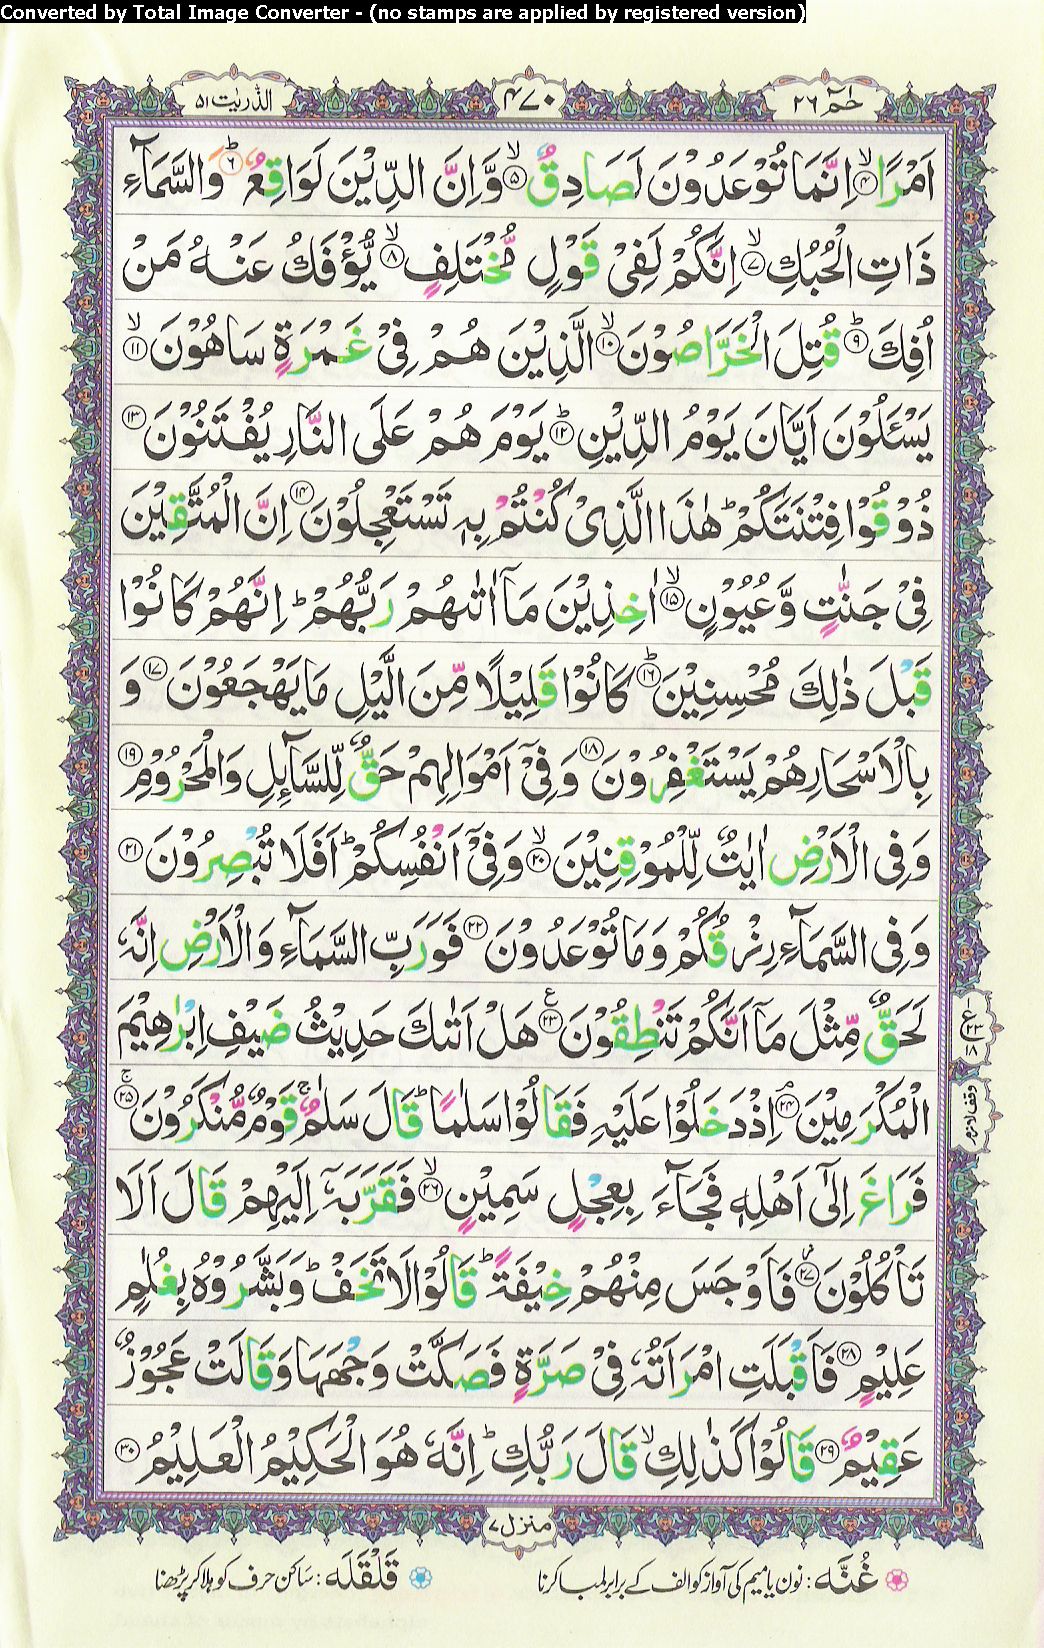 Converted by Total Image Converter - (no stamps are applied by registered version)
الذّٰریٰت ۵۱ ۴۷۰ حٰمٓ ۲۶
اَمْرًا ۙ﴿۴﴾ اِنَّمَا تُوْعَدُوْنَ لَصَادِقٌ ۙ﴿۵﴾ وَّاِنَّ الدِّیْنَ لَوَاقِعٌ ؕ﴿۶﴾ وَالسَّمَآءِ
ذَاتِ الْحُبُكِ ۙ﴿۷﴾ اِنَّكُمْ لَفِیْ قَوْلٍ مُّخْتَلِفٍ ۙ﴿۸﴾ یُّؤْفَكُ عَنْهُ مَنْ
اُفِكَ ؕ﴿۹﴾ قُتِلَ الْخَرّٰصُوْنَ ۙ﴿۱۰﴾ الَّذِیْنَ هُمْ فِیْ غَمْرَةٍ سَاهُوْنَ ۙ﴿۱۱﴾
یَسْـَٔلُوْنَ اَیَّانَ یَوْمُ الدِّیْنِ ؕ﴿۱۲﴾ یَوْمَ هُمْ عَلَی النَّارِ یُفْتَنُوْنَ ﴿۱۳﴾
ذُوْقُوْا فِتْنَتَكُمْ ؕ هٰذَا الَّذِیْ كُنْتُمْ بِهٖ تَسْتَعْجِلُوْنَ ﴿۱۴﴾ اِنَّ الْمُتَّقِیْنَ
فِیْ جَنّٰتٍ وَّعُیُوْنٍ ۙ﴿۱۵﴾ اٰخِذِیْنَ مَاۤ اٰتٰىهُمْ رَبُّهُمْ ؕ اِنَّهُمْ كَانُوْا
قَبْلَ ذٰلِكَ مُحْسِنِیْنَ ؕ﴿۱۶﴾ كَانُوْا قَلِیْلًا مِّنَ الَّیْلِ مَا یَهْجَعُوْنَ ﴿۱۷﴾ وَ
بِالْاَسْحَارِ هُمْ یَسْتَغْفِرُوْنَ ﴿۱۸﴾ وَفِیْۤ اَمْوَالِهِمْ حَقٌّ لِّلسَّآىِٕلِ وَالْمَحْرُوْمِ ﴿۱۹﴾
وَفِی الْاَرْضِ اٰیٰتٌ لِّلْمُوْقِنِیْنَ ۙ﴿۲۰﴾ وَفِیْۤ اَنْفُسِكُمْ ؕ اَفَلَا تُبْصِرُوْنَ ﴿۲۱﴾
وَفِی السَّمَآءِ رِزْقُكُمْ وَمَا تُوْعَدُوْنَ ﴿۲۲﴾ فَوَرَبِّ السَّمَآءِ وَالْاَرْضِ اِنَّهٗ
لَحَقٌّ مِّثْلَ مَاۤ اَنَّكُمْ تَنْطِقُوْنَ ﴿۲۳﴾ هَلْ اَتٰىكَ حَدِیْثُ ضَیْفِ اِبْرٰهِیْمَ
الْمُكْرَمِیْنَ ۘ﴿۲۴﴾ اِذْ دَخَلُوْا عَلَیْهِ فَقَالُوْا سَلٰمًا ؕ قَالَ سَلٰمٌ ۚ قَوْمٌ مُّنْكَرُوْنَ ۚ﴿۲۵﴾
فَرَاغَ اِلٰۤی اَهْلِهٖ فَجَآءَ بِعِجْلٍ سَمِیْنٍ ۙ﴿۲۶﴾ فَقَرَّبَهٗۤ اِلَیْهِمْ قَالَ اَلَا
تَاْكُلُوْنَ ؗ﴿۲۷﴾ فَاَوْجَسَ مِنْهُمْ خِیْفَةً ؕ قَالُوْا لَا تَخَفْ ؕ وَبَشَّرُوْهُ بِغُلٰمٍ
عَلِیْمٍ ﴿۲۸﴾ فَاَقْبَلَتِ امْرَاَتُهٗ فِیْ صَرَّةٍ فَصَكَّتْ وَجْهَهَا وَقَالَتْ عَجُوْزٌ
عَقِیْمٌ ﴿۲۹﴾ قَالُوْا كَذٰلِكِ ۙ قَالَ رَبُّكِ ؕ اِنَّهٗ هُوَ الْحَكِیْمُ الْعَلِیْمُ ﴿۳۰﴾
ع ۱ ۲۳ ۱۸
وقف لازم
منزل ۷
غُنَّه : نون یا میم کی آواز کو الف کے برابر لمبا کرنا
قَلْقَلَه : ساکن حرف کو ہلا کر پڑھنا